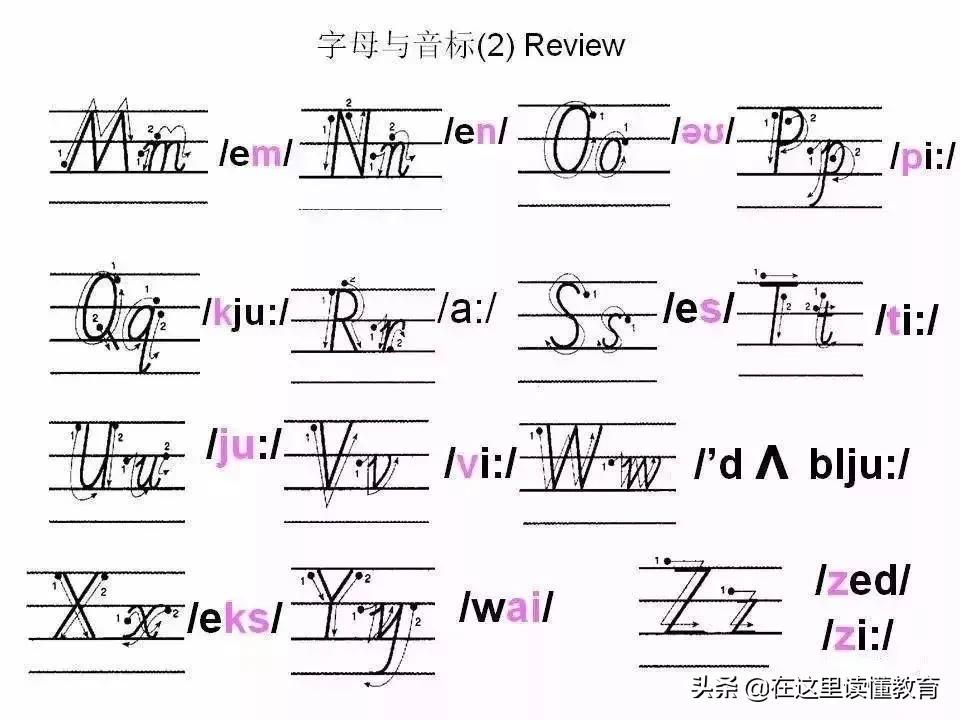 字母与音标(2) Review
Mm /em/ Nn /en/ Oo /əʊ/ Pp /pi:/
Qq /kju:/ Rr /a:/ Ss /es/ Tt /ti:/
Uu /ju:/ Vv /vi:/ Ww /'d Λ blju:/
Xx /eks/ Yy /wai/ Zz /zed/
/zi:/
头条 @在这里读懂教育